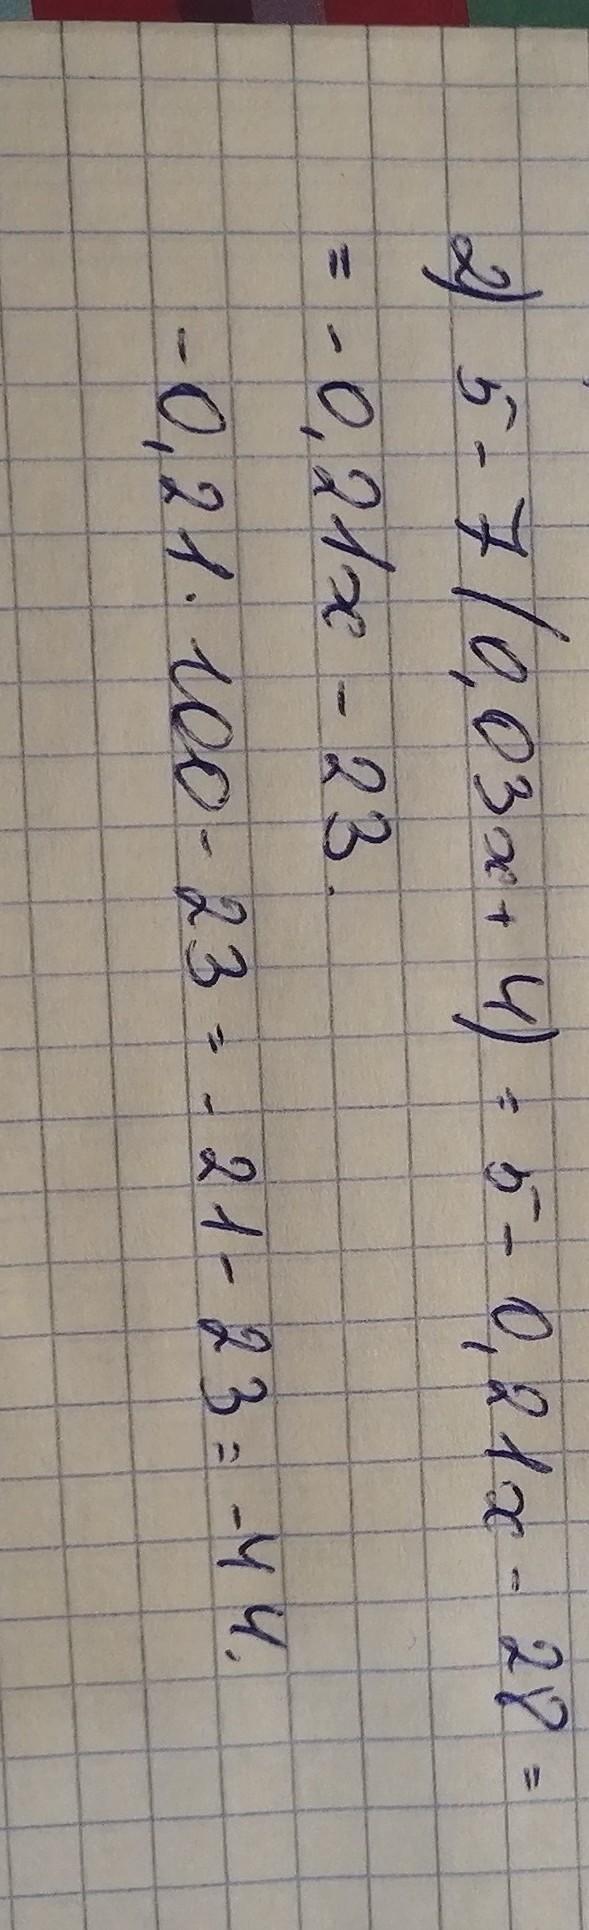 2) 5 - 7(0,03x + 4) = 5 - 0,21x - 28 =
= - 0,21x - 23.
- 0,21 · 100 - 23 = - 21 - 23 = - 44.